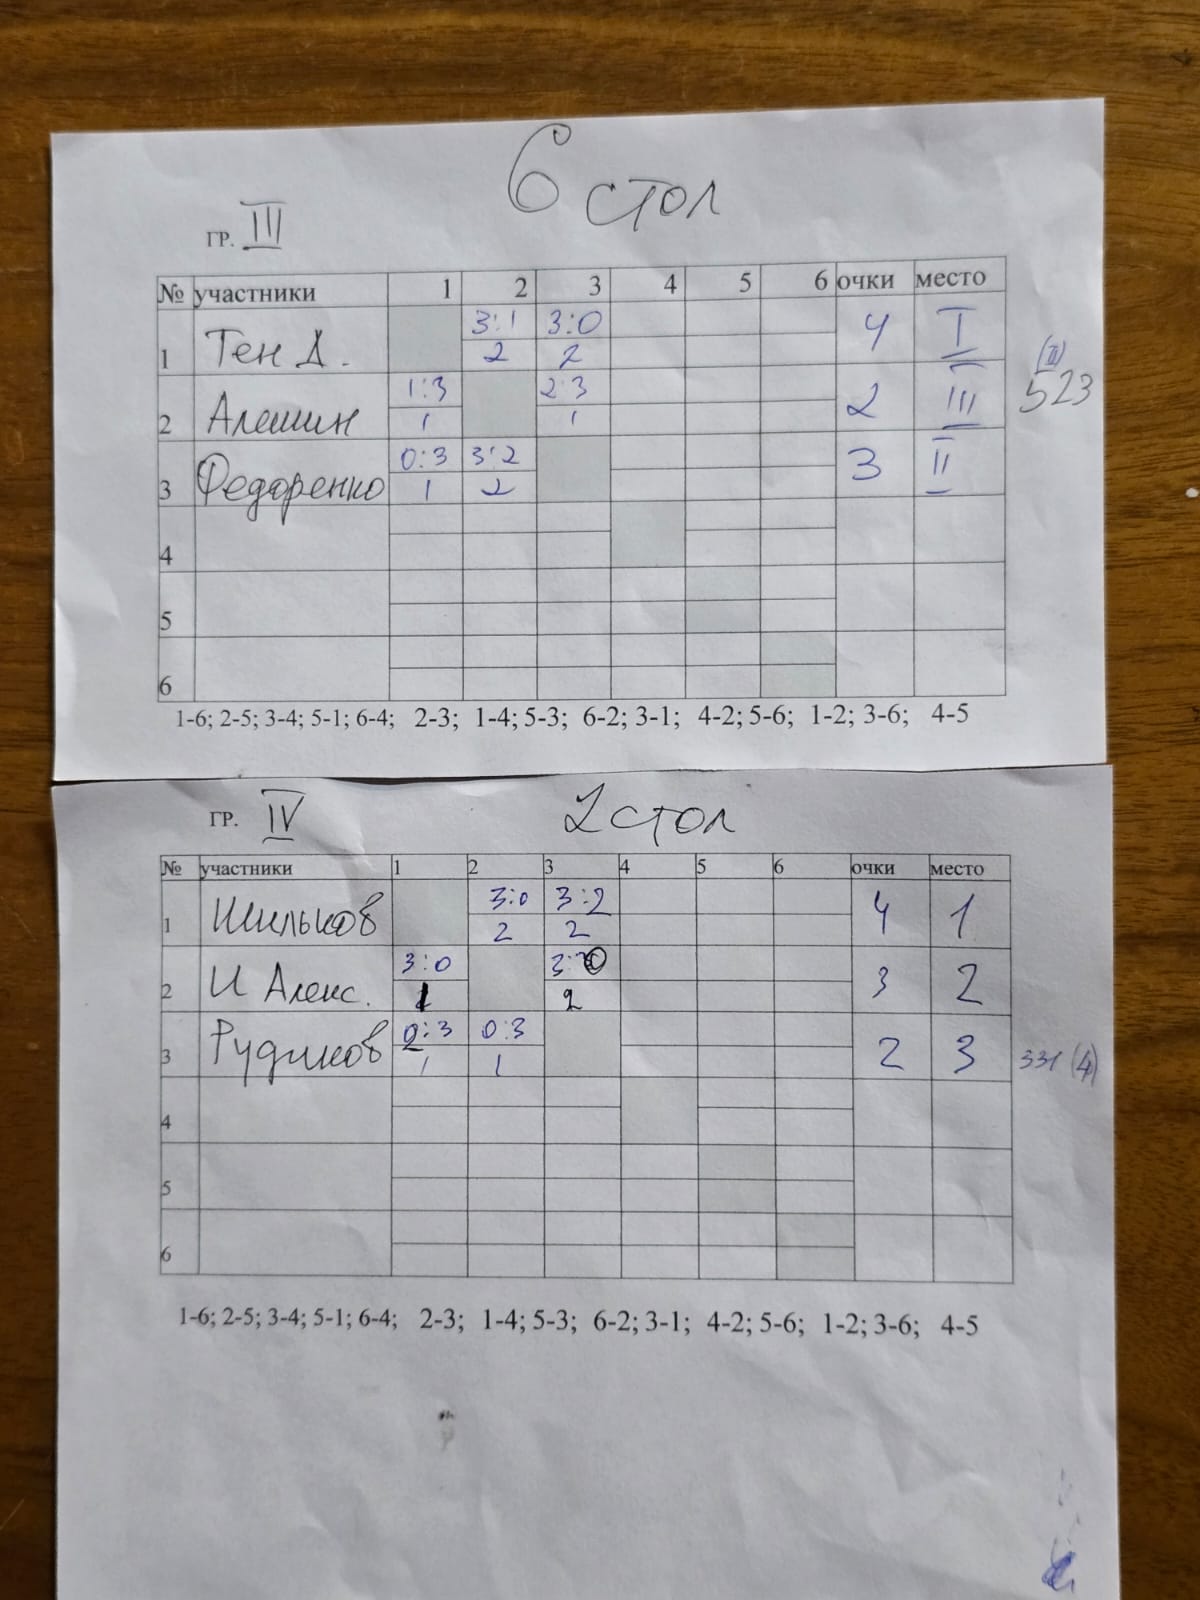 6 стол
ГР. III
№ участники 1 2 3 4 5 6 очки место
1 Тен Д. 3:1 3:0 4 I
2 2
2 Алешин 1:3 2:3 2 III
1 1
(III)
523
3 Федоренко 0:3 3:2 3 II
1 2
4
5
6
1-6; 2-5; 3-4; 5-1; 6-4; 2-3; 1-4; 5-3; 6-2; 3-1; 4-2; 5-6; 1-2; 3-6; 4-5
ГР. IV 2 стол
№ участники 1 2 3 4 5 6 очки место
1 Шильков 3:0 3:2 4 1
2 2
2 И Алекс. 3:0 3:0 3 2
1 2
3 Рудиков 2:3 0:3 2 3
1 1
331 (4)
4
5
6
1-6; 2-5; 3-4; 5-1; 6-4; 2-3; 1-4; 5-3; 6-2; 3-1; 4-2; 5-6; 1-2; 3-6; 4-5